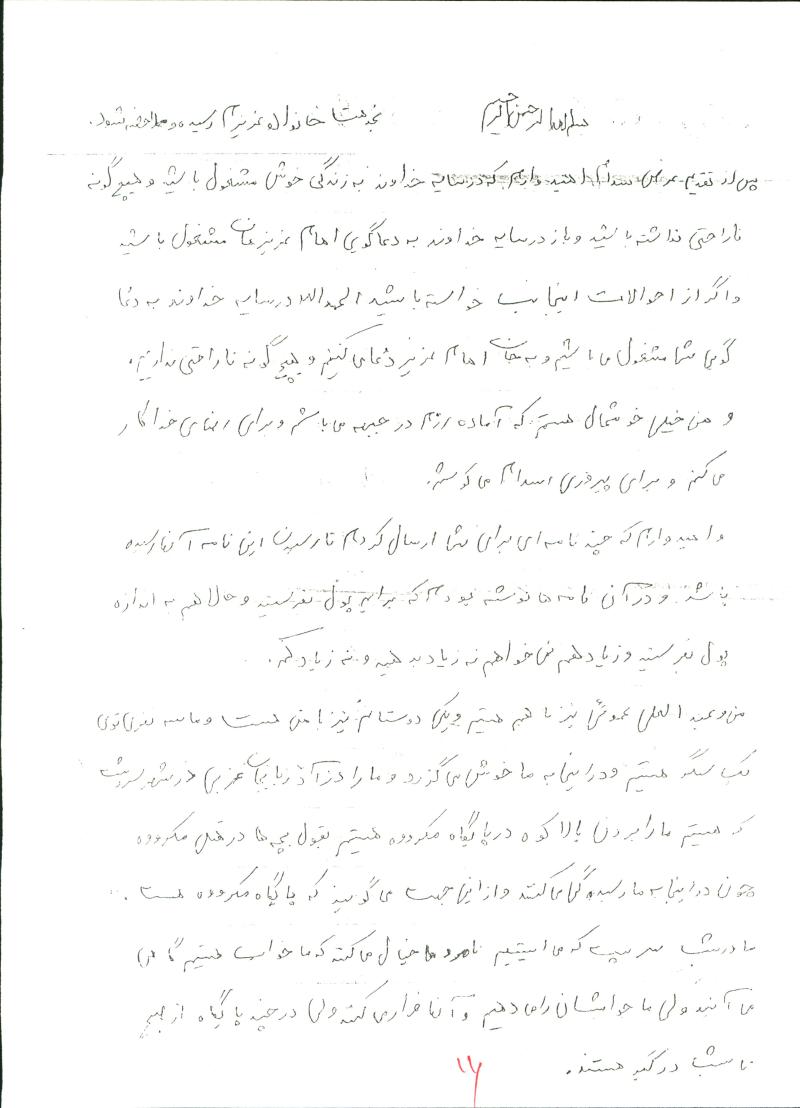 بسم الله الرحمن الرحیم
خدمت خانواده عزیزم رسیده و ملاحظه شود.
پس از تقدیم عرض سلام امید وارم که در سایه خداوند به زندگی خوش مشغول باشید و هیچ گونه
ناراحتی نداشته باشید و باز در سایه خداوند به دعاگویی امام عزیزمان مشغول باشید
و اگر از احوالات اینجانب خواسته باشید الحمدالله در سایه خداوند به دعا
گویی شما مشغول می باشیم و به جان امام عزیز دعا می کنیم و هیچ گونه ناراحتی نداریم.
و من خیلی خوشحال هستم که آماده رزم در جبهه می باشم و برای رضای خدا کار
می کنم و برای پیروزی اسلام می کوشم.
و امید وارم که چند نامه ای برای شما ارسال کردم تا رسیدن این نامه آنها رسیده
باشد و در آن نامه ها نوشته بودم که برایم پول نفرستید و حالا هم به اندازه
پول بفرستید و زیاد هم نمی خواهم نه زیاد بدهید و نه زیاد کم.
من و عبد العلی عموئی نیز با هم هستیم و یکی دوستانم نیز با من هست و ما سه نفری توی
یک سنگر هستیم و در اینجا به ما خوش می گذرد و ما را در آذربایجان غربی در شهر سردشت
که هستیم ما را بردن بالا کوه در پایگاه مکرووه هستیم بقول بچه ها در قتل مکرووه
چون در اینجا به ما رسیدگی می کنند و از این جهت می گویند که پایگاه مکرووه هست.
ما در شب سر پست که می ایستیم نامردها خیال می کنند که ما خواب هستیم
می آیند ولی ما جوابشان را می دهیم و آنها فرار می کنند ولی در چند پایگاه از صبح
تا شب درگیر هستند.
۱۶